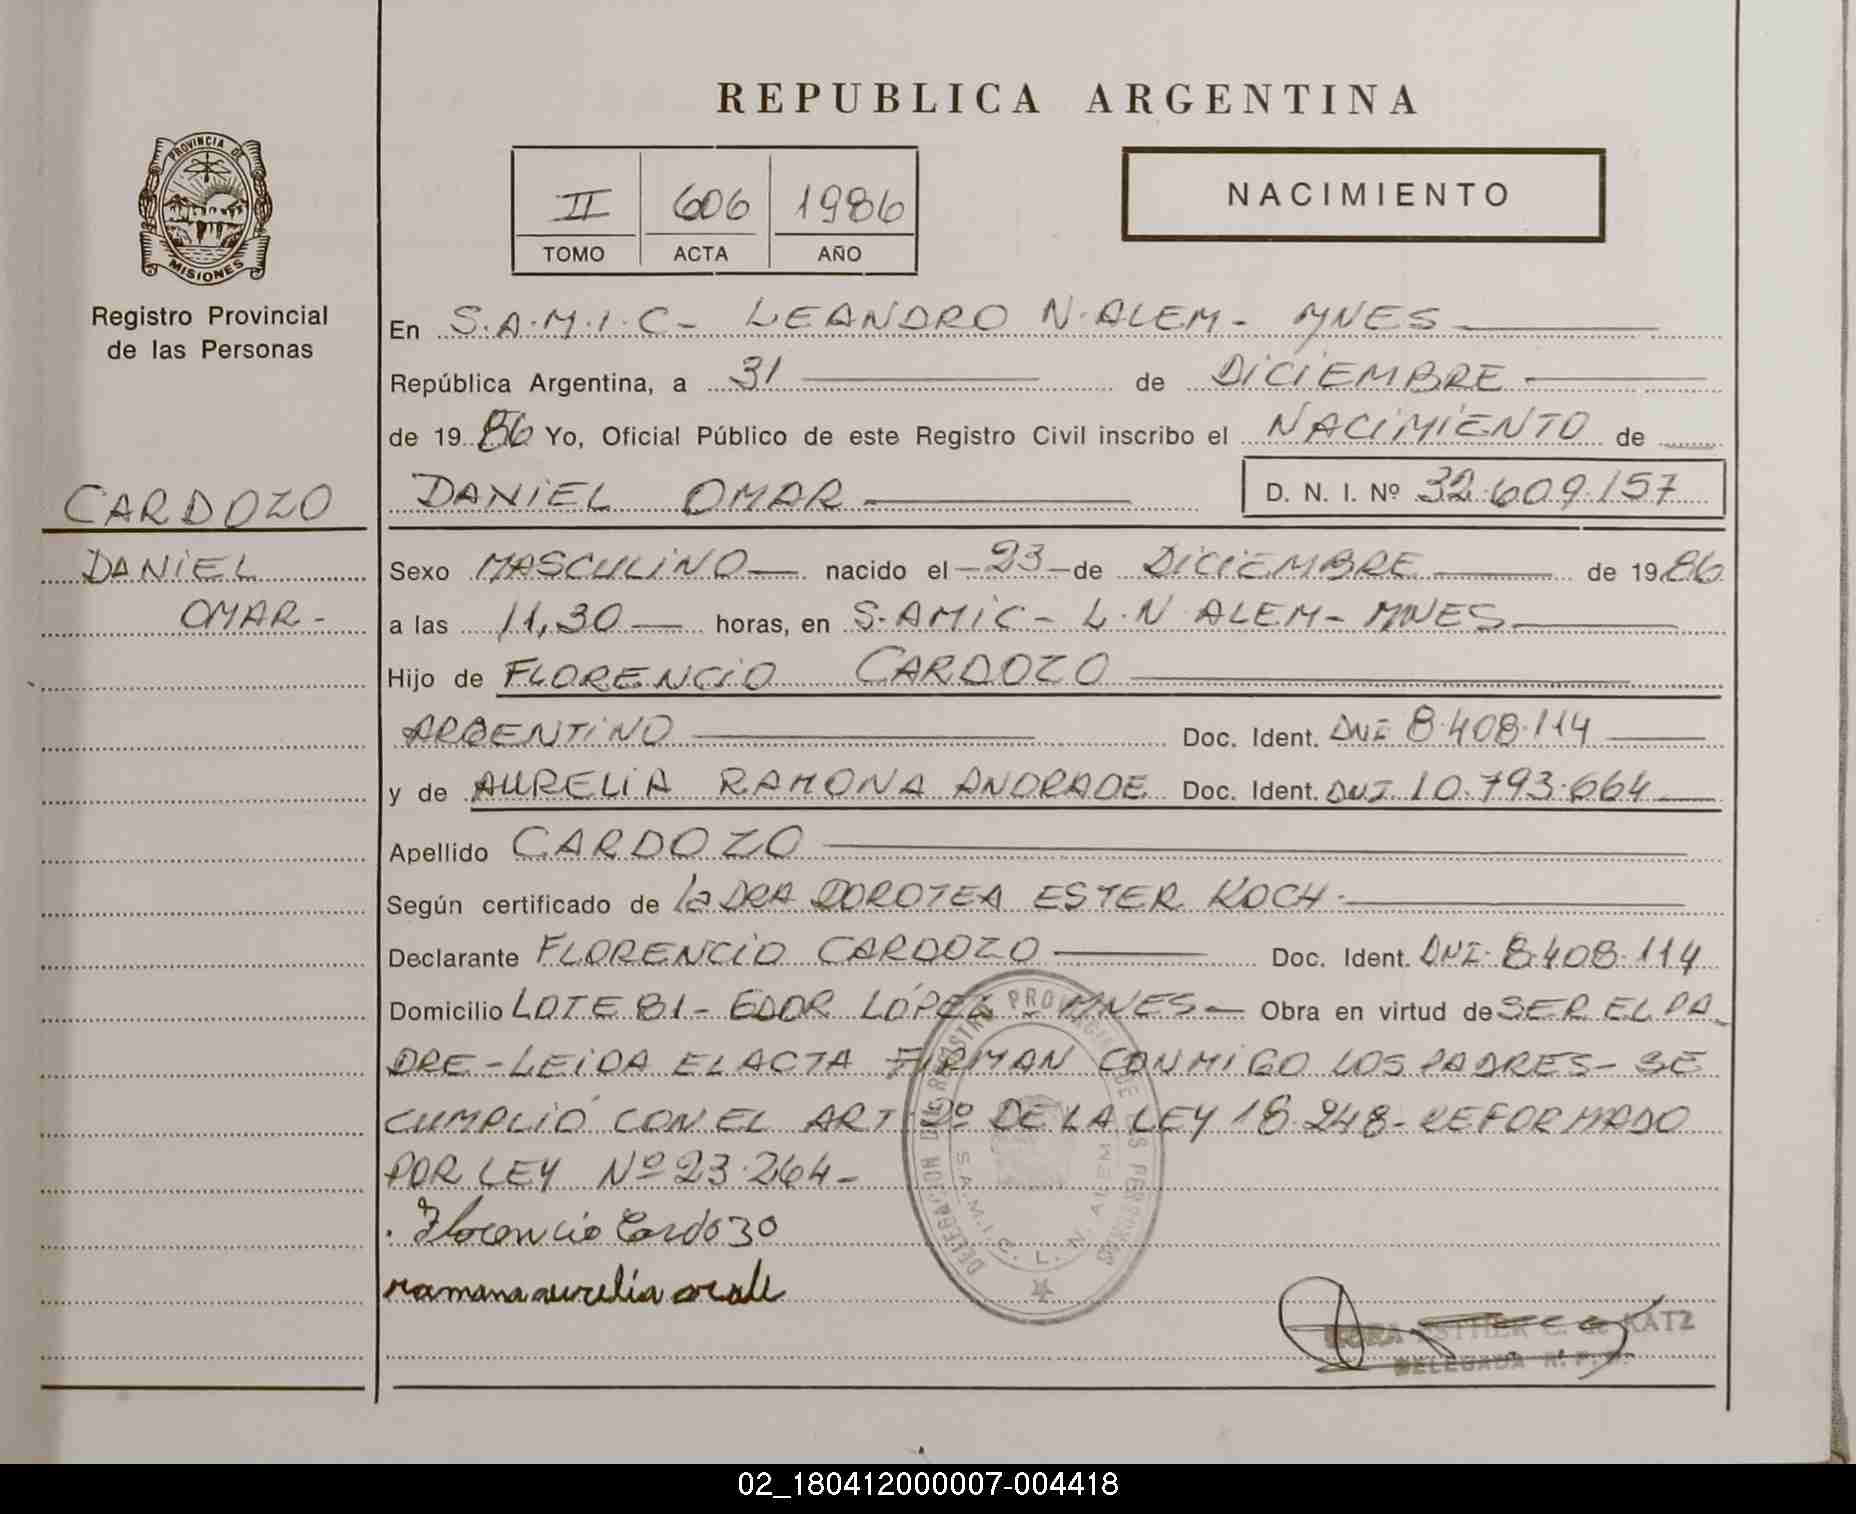 REPUBLICA ARGENTINA
PROVINCIA DE
MISIONES
Registro Provincial
de las Personas
II 606 1986
TOMO ACTA AÑO
NACIMIENTO
En S.A.M.I.C- LEANDRO N. ALEM- MNES
República Argentina, a 31 de DICIEMBRE
de 1986 Yo, Oficial Público de este Registro Civil inscribo el NACIMIENTO de
CARDOZO
DANIEL OMAR
D. N. I. Nº 32.609.157
DANIEL
OMAR-
Sexo MASCULINO nacido el 23 de DICIEMBRE de 1986
a las 11,30 horas, en S.AMIC- L.N ALEM- MNES
Hijo de FLORENCIO CARDOZO
ARGENTINO Doc. Ident. DNI 8.408.114
y de AURELIA RAMONA ANDRADE Doc. Ident. DNI 10.793.664
Apellido CARDOZO
Según certificado de la DRA DOROTEA ESTER KOCH.
Declarante FLORENCIO CARDOZO Doc. Ident. DNI 8.408.114
Domicilio LOTE 81- GDOR LÓPEZ - MNES- Obra en virtud de SER EL PA-
DRE-LEIDA EL ACTA FIRMAN CONMIGO LOS PADRES- SE
CUMPLIÓ CON EL ART 2º DE LA LEY 18.248- REFORMADO
POR LEY Nº 23.264-
Florencio Cardozo
ramona aurelia
DELEGACION REGISTRO PROVINCIAL DE LAS PERSONAS
S.A.M.I.C. L. N. ALEM
ESTHER C. de KATZ
DELEGADA R. P. P.
02_180412000007-004418